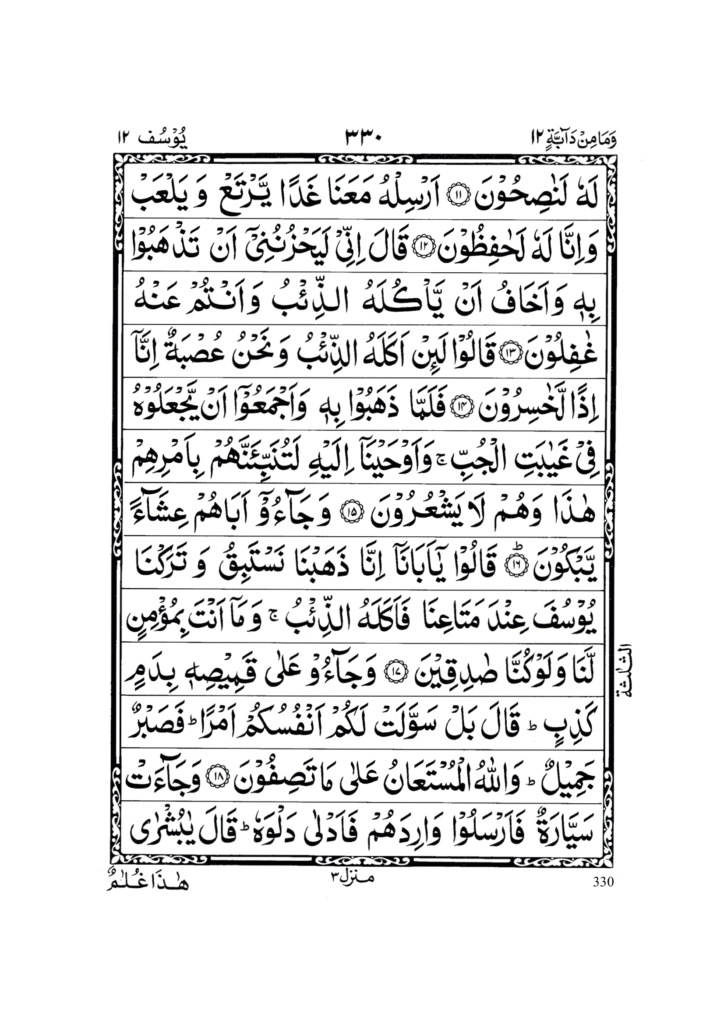 وَمَا مِنْ دَآبَّةٍ ١٢
٣٣٠
يُوْسُف ١٢
لَهٗ لَنٰصِحُوْنَ ﴿١١﴾ اَرْسِلْهُ مَعَنَا غَدًا يَّرْتَعْ وَ يَلْعَبْ
وَاِنَّا لَهٗ لَحٰفِظُوْنَ ﴿١٢﴾ قَالَ اِنِّیْ لَیَحْزُنُنِیْٓ اَنْ تَذْهَبُوْا
بِهٖ وَاَخَافُ اَنْ يَّاْكُلَهُ الذِّئْبُ وَاَنْتُمْ عَنْهُ
غٰفِلُوْنَ ﴿١٣﴾ قَالُوْا لَئِنْ اَكَلَهُ الذِّئْبُ وَنَحْنُ عُصْبَةٌ اِنَّآ
اِذًا لَّخٰسِرُوْنَ ﴿١٤﴾ فَلَمَّا ذَهَبُوْا بِهٖ وَاَجْمَعُوْٓا اَنْ يَّجْعَلُوْهُ
فِیْ غَيٰبَتِ الْجُبِّ ۚ وَاَوْحَيْنَآ اِلَيْهِ لَتُنَبِّئَنَّهُمْ بِاَمْرِهِمْ
هٰذَا وَهُمْ لَا يَشْعُرُوْنَ ﴿١٥﴾ وَجَآءُوْٓ اَبَاهُمْ عِشَآءً
يَّبْكُوْنَ ؕ﴿١٦﴾ قَالُوْا يٰٓاَبَانَآ اِنَّا ذَهَبْنَا نَسْتَبِقُ وَ تَرَكْنَا
يُوْسُفَ عِنْدَ مَتَاعِنَا فَاَكَلَهُ الذِّئْبُ ۚ وَمَآ اَنْتَ بِمُؤْمِنٍ
لَّنَا وَلَوْ كُنَّا صٰدِقِيْنَ ﴿١٧﴾ وَجَآءُوْ عَلٰى قَمِيْصِهٖ بِدَمٍ
كَذِبٍ ؕ قَالَ بَلْ سَوَّلَتْ لَكُمْ اَنْفُسُكُمْ اَمْرًا ؕ فَصَبْرٌ
جَمِيْلٌ ؕ وَاللّٰهُ الْمُسْتَعَانُ عَلٰى مَا تَصِفُوْنَ ﴿١٨﴾ وَجَآءَتْ
سَيَّارَةٌ فَاَرْسَلُوْا وَارِدَهُمْ فَاَدْلٰى دَلْوَهٗ ؕ قَالَ يٰبُشْرٰى
الثالثة
هٰذَا غُلٰمٌ
منزل ٣
330